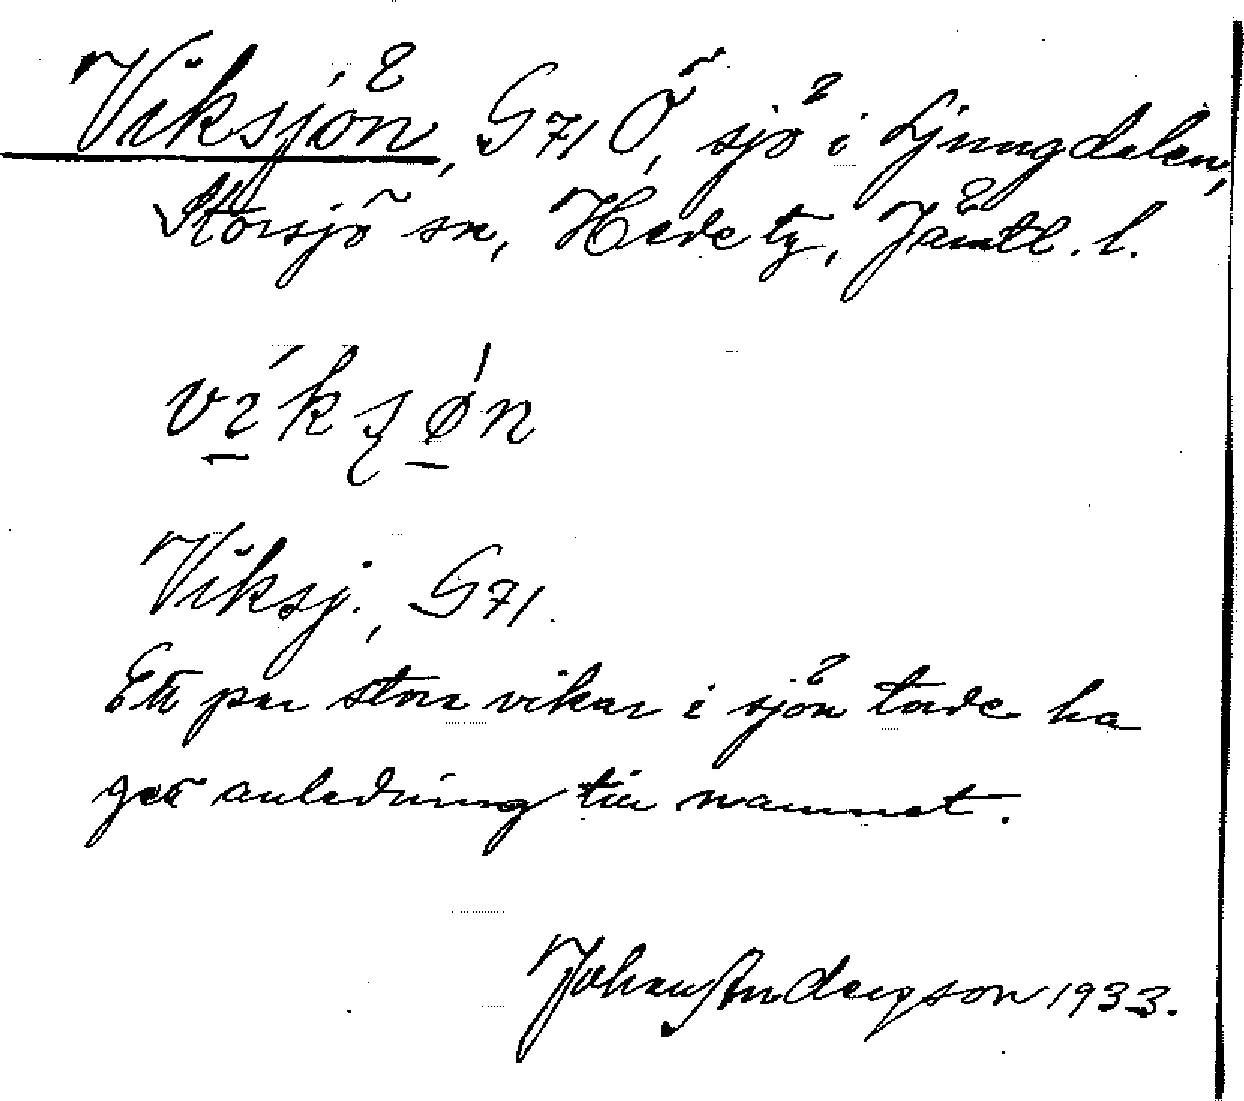 Viksjön, G71 Ö, sjö i Ljungdalen,
Storsjö sn, Hede tg, Jämtl. l.
víkşø̀n
Viksj., G71.
Ett par stora vikar i sjön torde ha
gett anledning till namnet.
Johan Anderzson 1933.